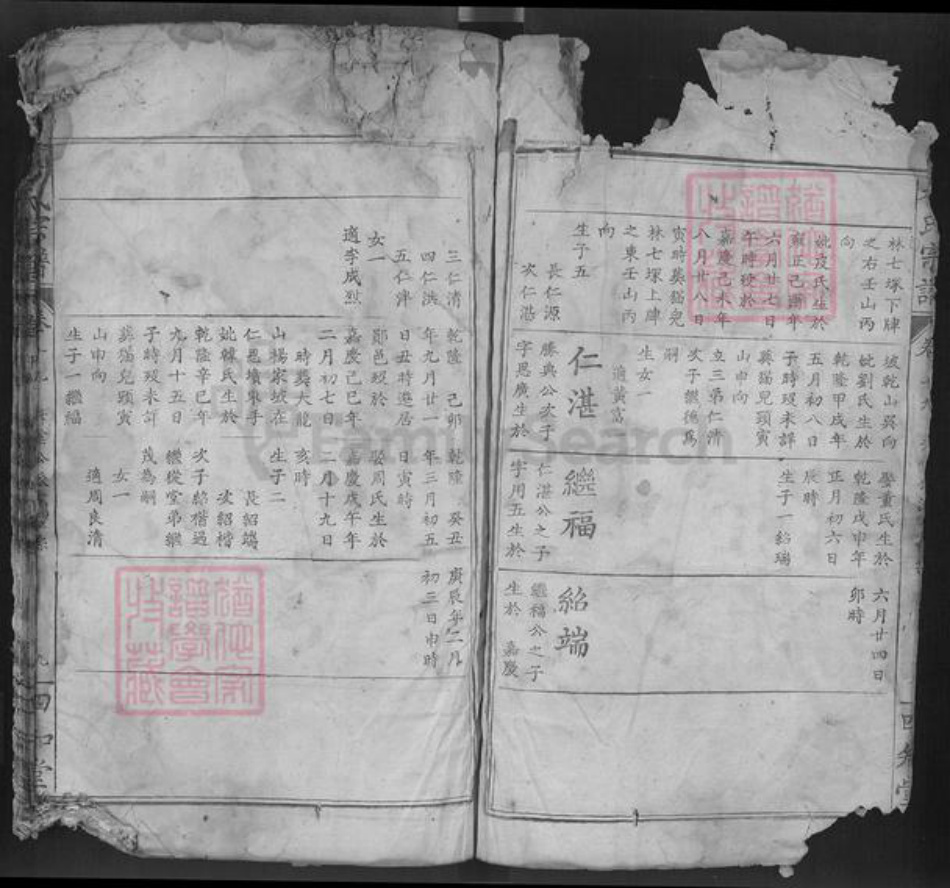 林七塚下牌
之右壬山丙
向
妣皮氏生於
雍正己酉年
六月廿七日
午時歿於
嘉慶己未年
八月廿八日
寅時葬貓兒
林七塚上牌
之東壬山丙
向
生子五
長仁源
次仁湛
坡乾山巽向
妣劉氏生於
乾隆甲戌年
五月初八日
子時歿未詳
葬貓兒頸寅
山申向
立三弟仁清
次子繼德為
嗣
生女一
適黃富
仁湛
勝典公次子
字思廣生於
娶董氏生於
乾隆戊申年
正月初六日
辰時
生子一紹瑞
繼福
仁湛公之子
字用五生於
六月廿四日
卯時
紹端
繼福公之子
生於 嘉慶
三仁清
四仁洪
五仁津
女一
適李成烈
乾隆 己卯
年九月廿一
日丑時遷居
鄖邑歿於
嘉慶己巳年
二月初七日
時葬大龍
山楊家坡在
仁恩墳東手
妣韓氏生於
乾隆辛巳年
九月十五日
子時歿未詳
葬貓兒頸寅
山申向
生子一繼福
乾隆 癸丑
年三月初五
日寅時
娶周氏生於
嘉慶戊午年
二月十九日
亥時
生子二
長紹端
次紹楷
次子紹楷過
繼從堂弟繼
茂為嗣
女一
適周良清
庚辰年二月
初三日申時